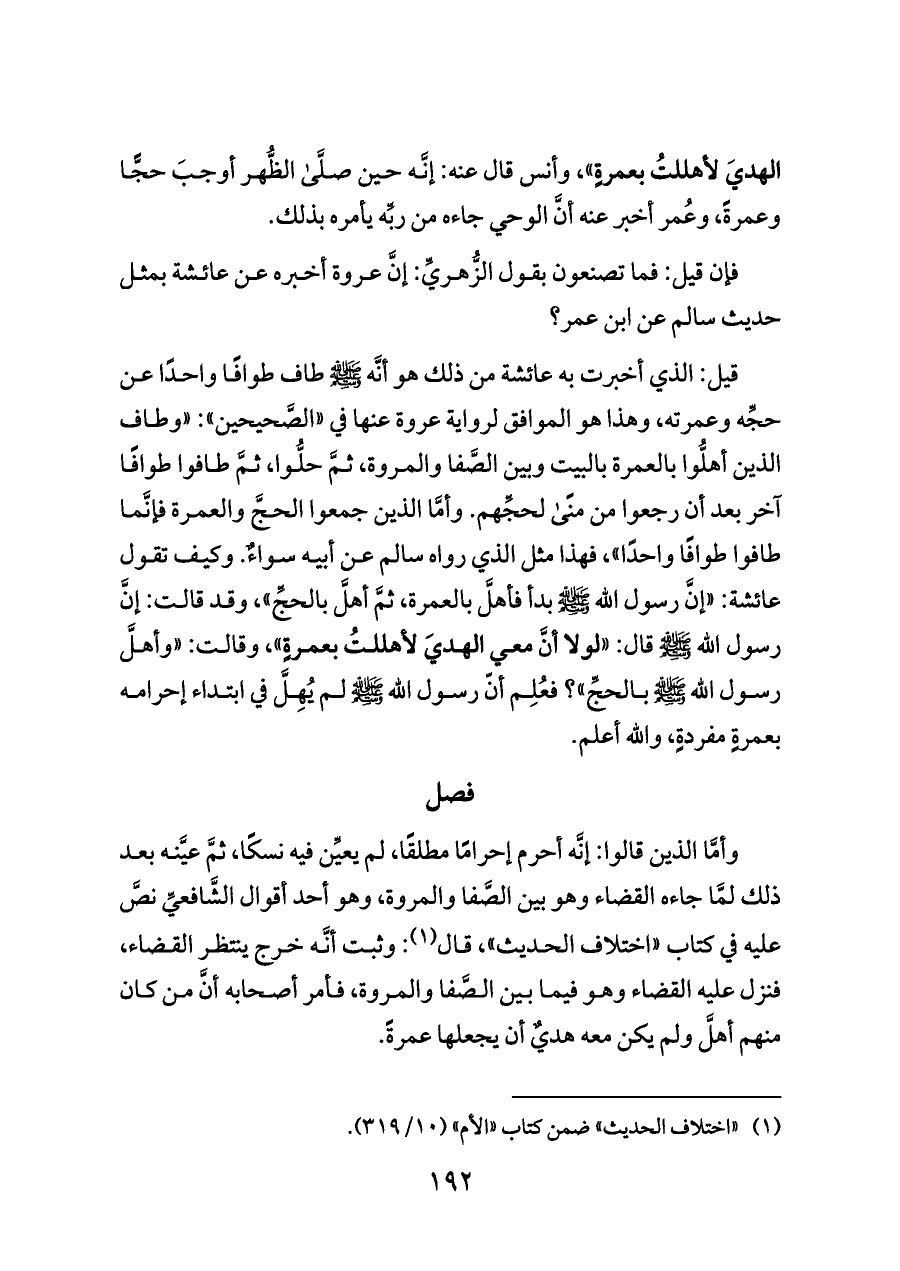 الهديَ لأهللتُ بعمرةٍ»، وأنس قال عنه: إنَّه حين صلَّىٰ الظُّهر أوجبَ حجًّا
وعمرةً، وعُمر أخبر عنه أنَّ الوحي جاءه من ربِّه يأمره بذلك.
فإن قيل: فما تصنعون بقول الزُّهريِّ: إنَّ عروة أخبره عن عائشة بمثل
حديث سالم عن ابن عمر؟
قيل: الذي أخبرت به عائشة من ذلك هو أنَّه ﷺ طاف طوافًا واحدًا عن
حجِّه وعمرته، وهذا هو الموافق لرواية عروة عنها في «الصَّحيحين»: «وطاف
الذين أهلُّوا بالعمرة بالبيت وبين الصَّفا والمروة، ثمَّ حلُّوا، ثمَّ طافوا طوافًا
آخر بعد أن رجعوا من منًىٰ لحجِّهم. وأمَّا الذين جمعوا الحجَّ والعمرة فإنَّما
طافوا طوافًا واحدًا»، فهذا مثل الذي رواه سالم عن أبيه سواءٌ. وكيف تقول
عائشة: «إنَّ رسول الله ﷺ بدأ فأهلَّ بالعمرة، ثمَّ أهلَّ بالحجِّ»، وقد قالت: إنَّ
رسول الله ﷺ قال: «لولا أنَّ معي الهديَ لأهللتُ بعمرةٍ»، وقالت: «وأهلَّ
رسول الله ﷺ بالحجِّ»؟ فعُلِم أنّ رسول الله ﷺ لم يُهِلَّ في ابتداء إحرامه
بعمرةٍ مفردةٍ، والله أعلم.
فصل
وأمَّا الذين قالوا: إنَّه أحرم إحرامًا مطلقًا، لم يعيِّن فيه نسكًا، ثمَّ عيَّنه بعد
ذلك لمَّا جاءه القضاء وهو بين الصَّفا والمروة، وهو أحد أقوال الشَّافعيِّ نصَّ
عليه في كتاب «اختلاف الحديث»، قال(١): وثبت أنَّه خرج ينتظر القضاء،
فنزل عليه القضاء وهو فيما بين الصَّفا والمروة، فأمر أصحابه أنَّ من كان
منهم أهلَّ ولم يكن معه هديٌ أن يجعلها عمرةً.
(١) «اختلاف الحديث» ضمن كتاب «الأم» (١٠/ ٣١٩).
١٩٢